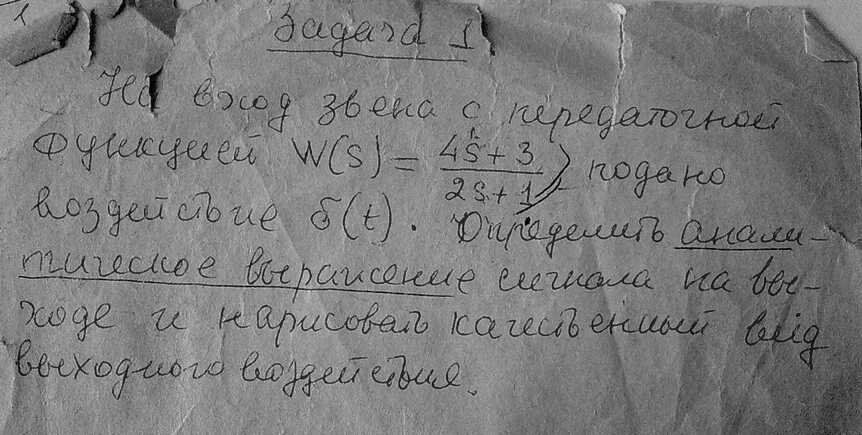 1
Задача 1
На вход звена с передаточной
функцией W(s) = (4s + 3)/(2s + 1), подано
воздействие δ(t). Определить анали-
тическое выражение сигнала на вы-
ходе и нарисовать качественный вид
выходного воздействия.